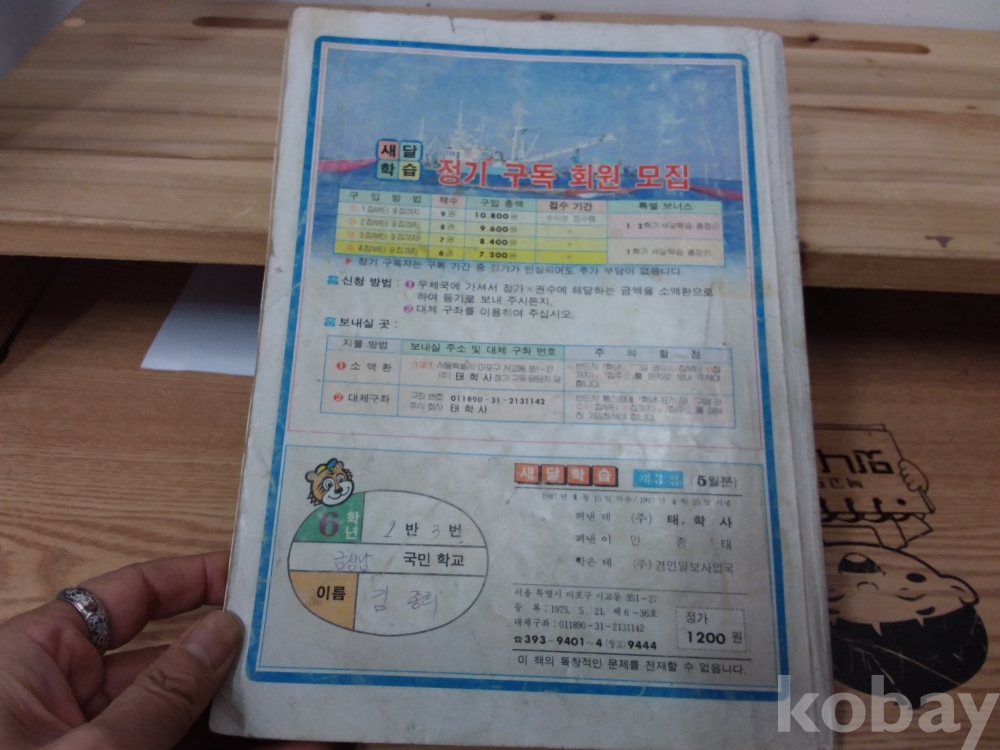 새달
학습
정기 구독 회원 모집
구 입 방 법 책수 구입 총액 접수 기간 특별 보너스
1집부터 9집까지 9권 10.800원 수시로 접수함
2집부터 9집까지 8권 9.600원 〃 1·2학기 새달학습 총정리
3집부터 9집까지 7권 8.400원 〃
4집부터 9집까지 6권 7.200원 〃 1학기 새달학습 총정리
▶ 정기 구독자는 구독 기간 중 정가가 인상되어도 추가 부담이 없읍니다.
신청 방법 : ❶ 우체국에 가셔서 정가×권수에 해당하는 금액을 소액환으로
하여 등기로 보내 주시든지,
❷ 대체 구좌를 이용하여 주십시오.
보내실 곳 :
지불 방법 보내실 주소 및 대체 구좌 번호 주 의 할 점
❶ 소 액 환 서울특별시 마포구 서교동 351-27
(주) 태 학 사 정기 구독 담당자 앞
❷ 대체구좌 구좌 번호 011890-31-2131142
주식 회사 태 학 사
6 학년 2 반 3 번
국민 학교
이름 김
새달학습 제3집 (5월분)
1987년 4월 15일 인쇄/1987년 4월 25일 펴냄
펴낸 데 (주) 태, 학 사
펴낸 이 안 종 태
박은 데 (주) 경인일보사업국
서울 특별시 마포구 서교동 351-27
등 록 : 1975. 5. 21. 제 6-36호
대체구좌 : 011890-31-2131142
☎ 393-9401~4 (창고) 9444
정가
1200 원
이 책의 독창적인 문제를 전재할 수 없읍니다.
kobay